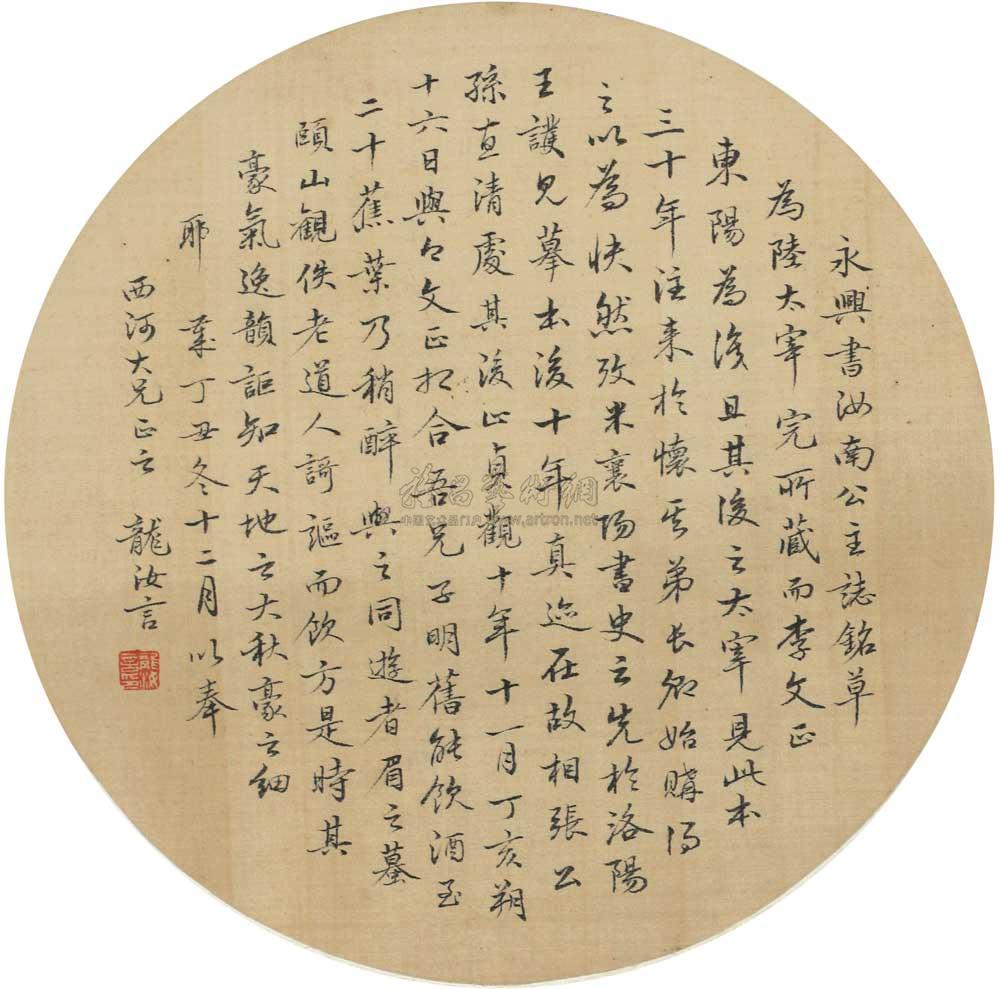 永興書汝南公主誌銘草
為陸太宰完所藏而李文正
東陽為後且其後之太宰見此本
三十年注来於懷吾弟長卿始購得
之以為快然攷米襄陽書史云先於洛陽
王護見摹本後十年真迹在故相張公
孫直清處其後止貞觀十年十一月丁亥朔
十六日與今文正相合吾兄子明舊能飲酒至
二十蕉葉乃稍醉與之同遊者眉之蟇
頤山觀佚老道人謌謳而飲方是時其
豪氣逸韻詎知天地之大秋豪之細
耶 歲丁丑冬十二月以奉
西河大兄正之 龍汝言
中国艺术品门户 www.artron.net